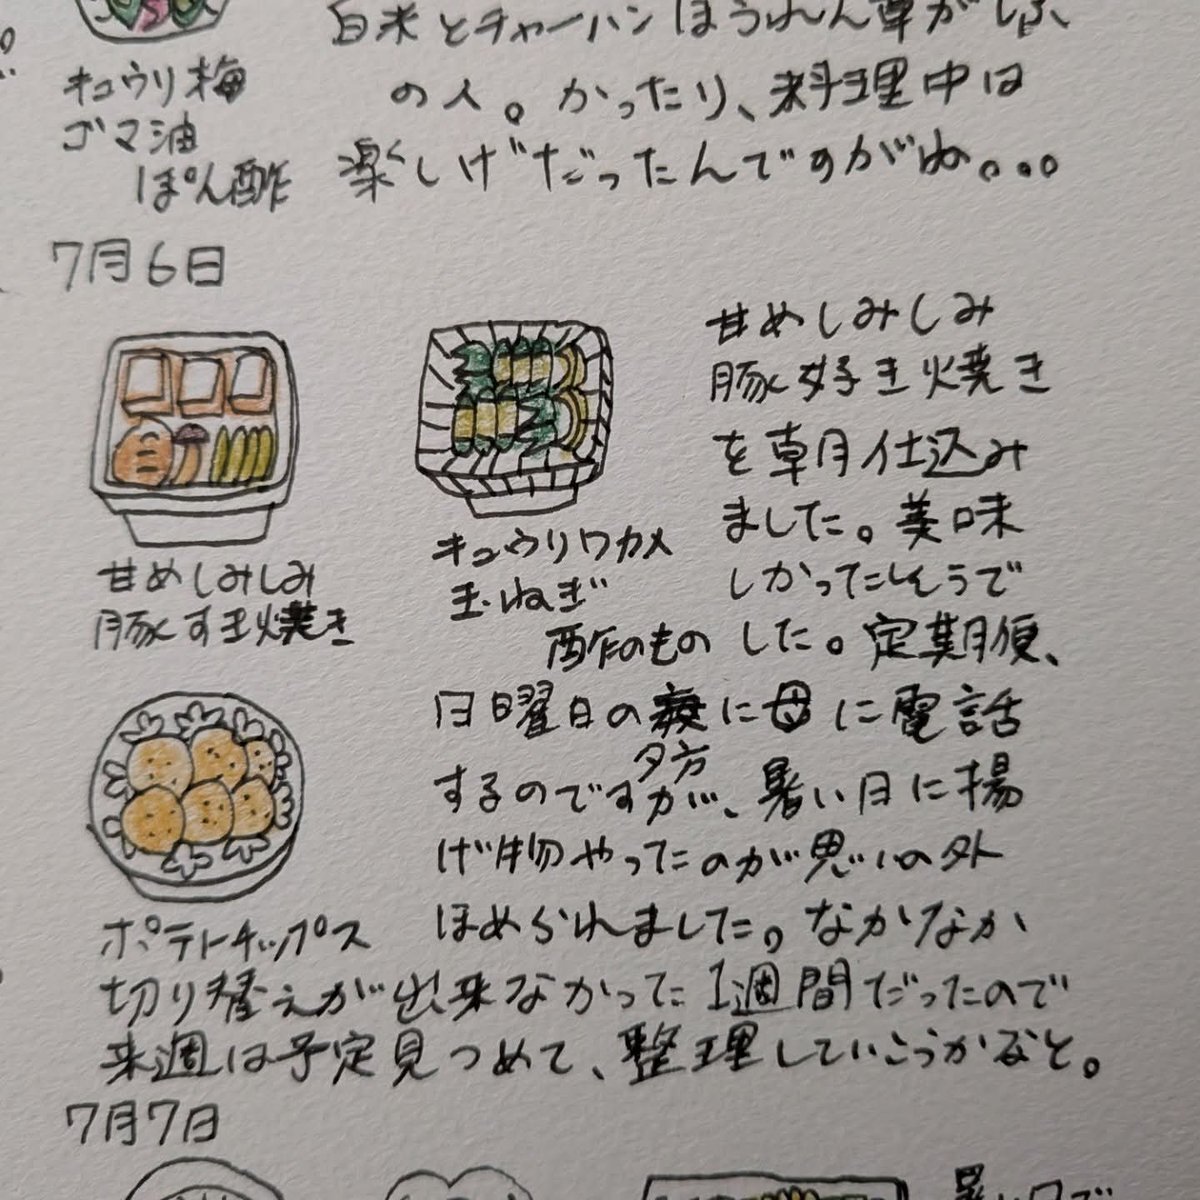 白米とチャーハンほうれん草がしぶ、
キュウリ梅
ゴマ油
ぽん酢
の人。かったり、料理中は
楽しげだったんですがね。。。
7月6日
甘めしみしみ
豚すき焼き
キュウリワカメ
玉ねぎ
酢のもの
ポテトチップス
甘めしみしみ
豚好き焼き
を朝仕込み
ました。美味
しかったそうで
した。定期便、
日曜日の夜に母に電話
夕方
するのですが、暑い日に揚
げ物やったのが思いの外
ほめられました。なかなか
切り替えが出来なかった1週間だったので
来週は予定見つめて、整理していこうかなと。
7月7日